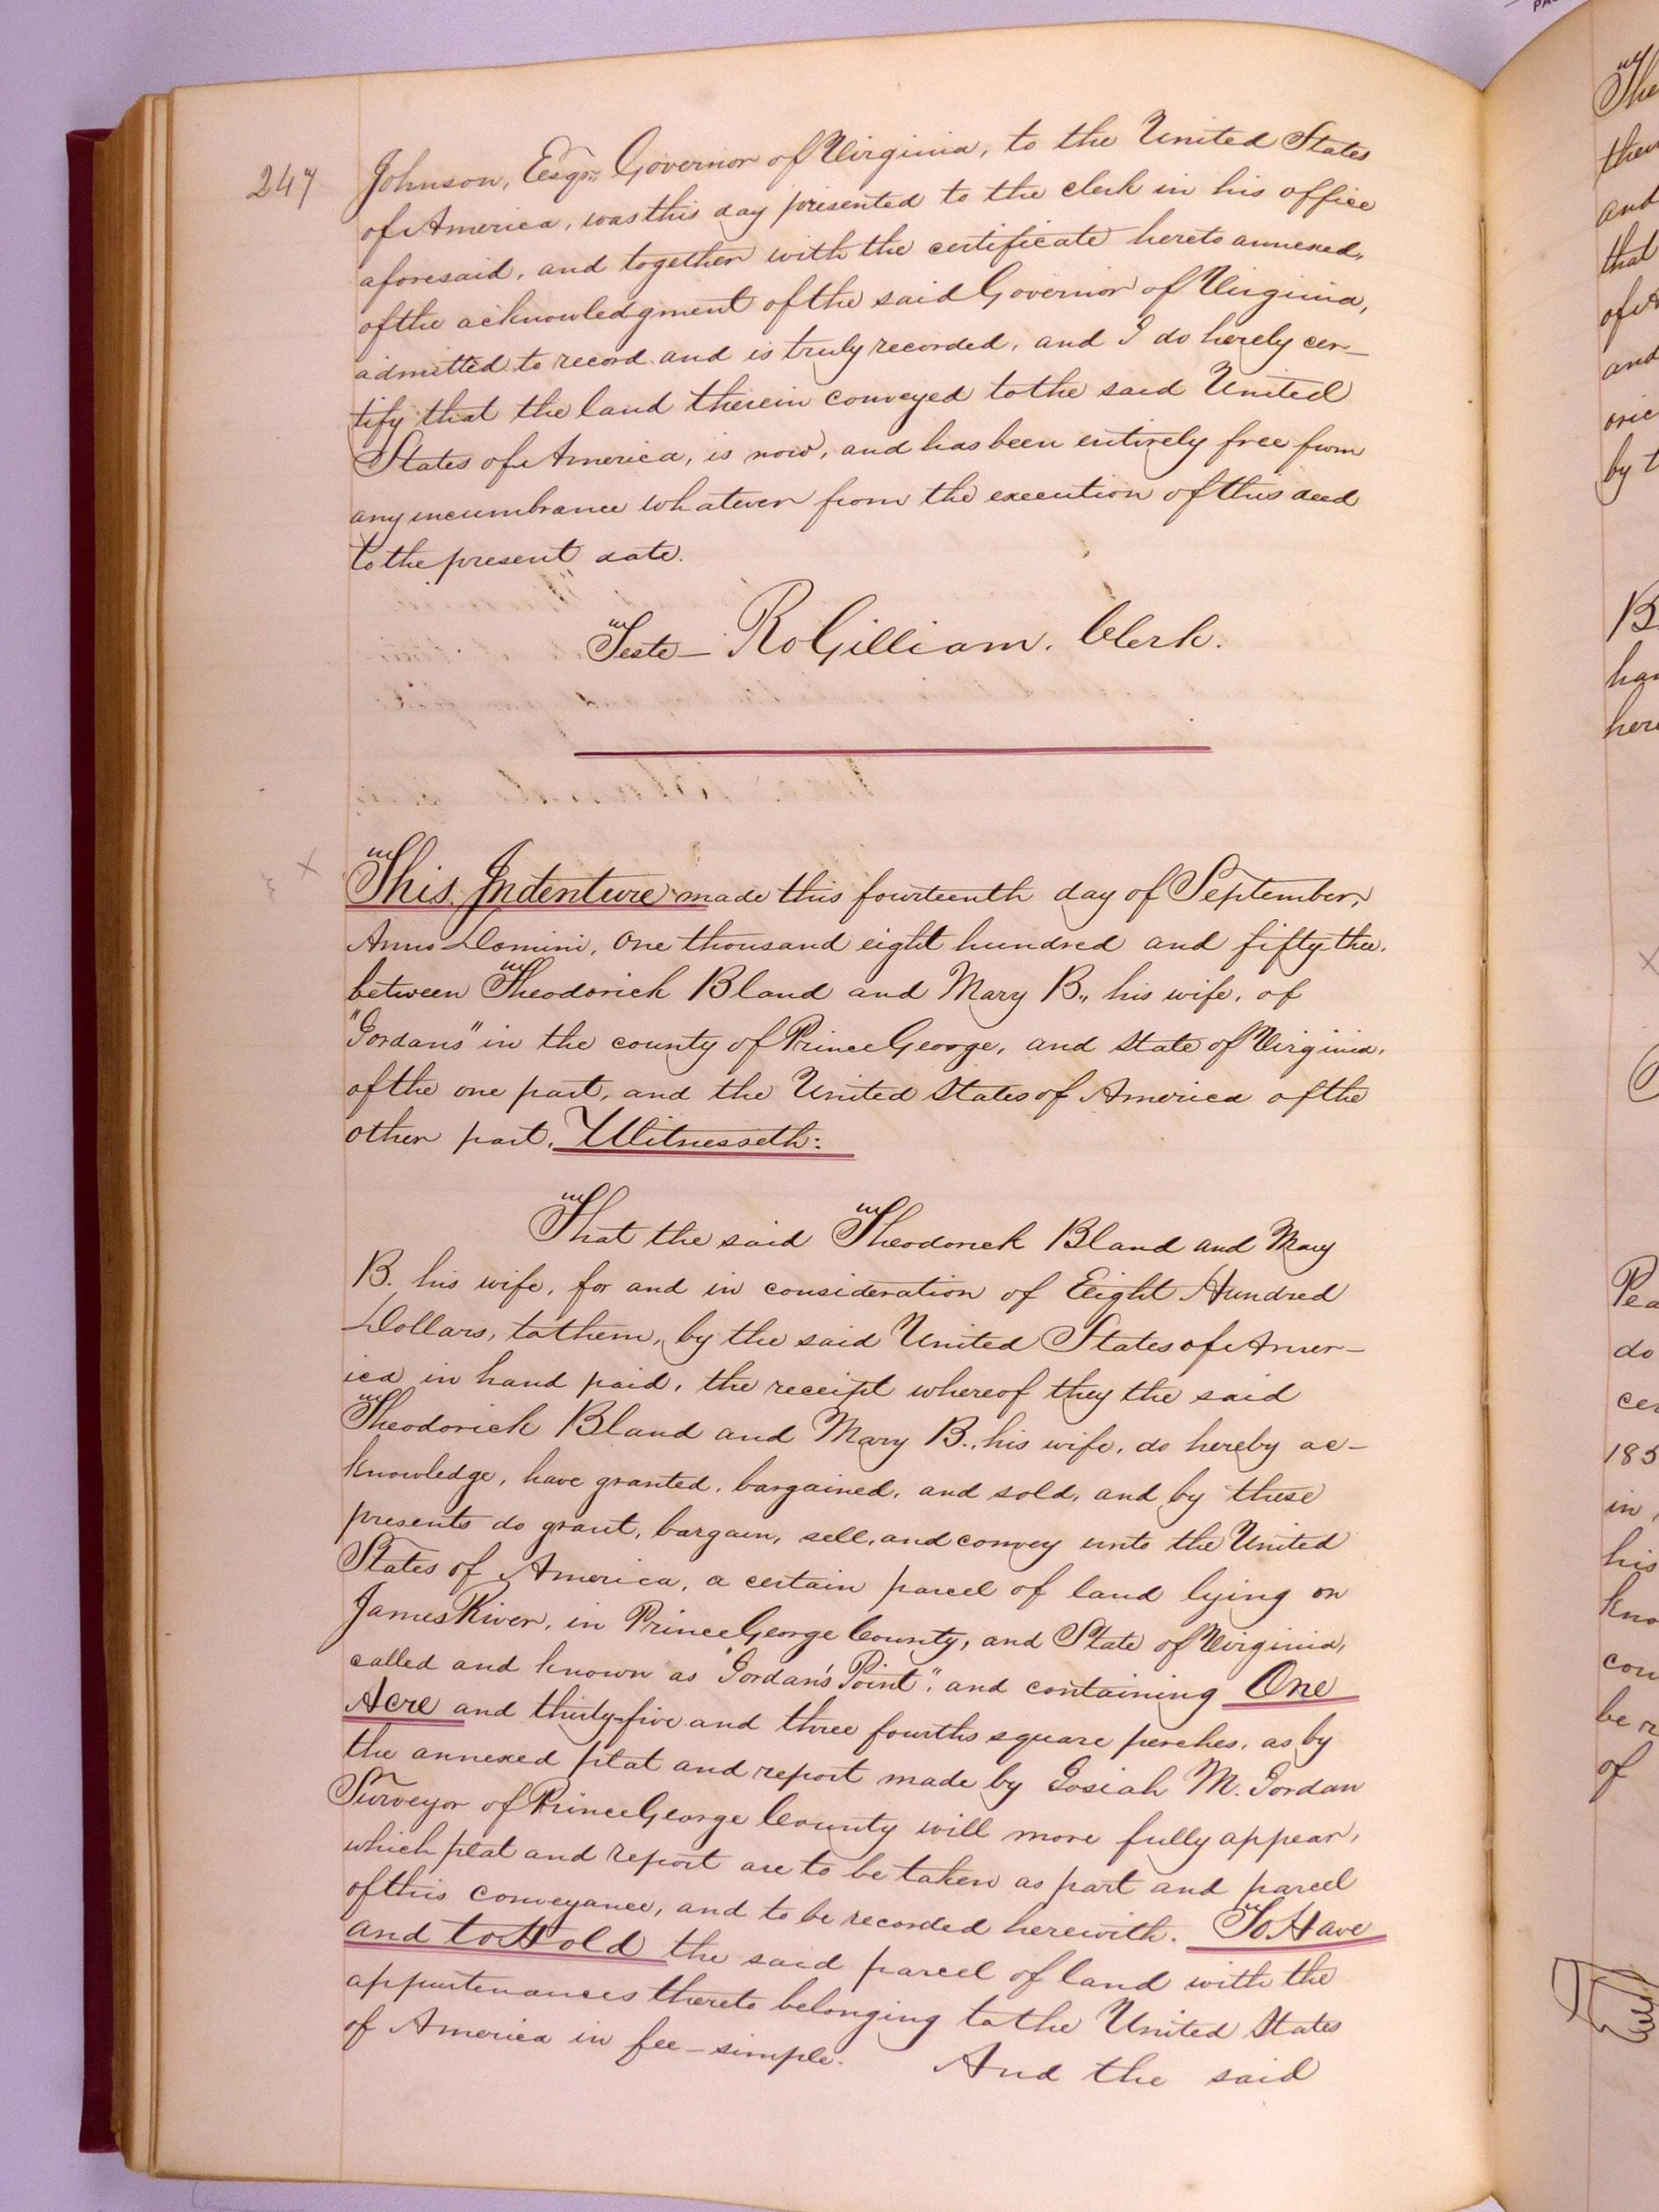 247
Johnson, Esqr. Governor of Virginia, to the United States
of America, was this day presented to the clerk in his office
aforesaid, and together with the certificate hereto annexed,
of the acknowledgment of the said Governor of Virginia,
admitted to record and is truly recorded, and I do hereby cer-
tify that the land therein conveyed to the said United
States of America, is now, and has been entirely free from
any incumbrance whatever from the execution of this deed
to the present date.
Teste— Ro Gilliam. Clerk.
This Indenture made this fourteenth day of September,
Anno Domini, One thousand eight hundred and fifty thee,
between Theodorick Bland and Mary B., his wife, of
"Jordans" in the county of Prince George, and State of Virginia,
of the one part, and the United States of America of the
other part. Witnesseth:
That the said Theodorick Bland and Mary
B. his wife, for and in consideration of Eight Hundred
Dollars, to them, by the said United States of Amer-
ica in hand paid, the receipt whereof they the said
Theodorick Bland and Mary B., his wife, do hereby ac-
knowledge, have granted, bargained, and sold, and by these
presents do grant, bargain, sell, and convey unto the United
States of America, a certain parcel of land lying on
James River, in Prince George County, and State of Virginia,
called and known as "Jordan's Point", and containing One
Acre and thirty-five and three fourths square perches, as by
the annexed plat and report made by Josiah M. Jordan
Surveyor of Prince George County will more fully appear,
which plat and report are to be taken as part and parcel
of this conveyance, and to be recorded herewith. To Have
and to Hold the said parcel of land with the
appurtenances thereto belonging to the United States
of America in fee-simple. And the said
The
then
and
that
and
by t
B
her
Pea
do
cer
185
in
his
kno
con
be r
of